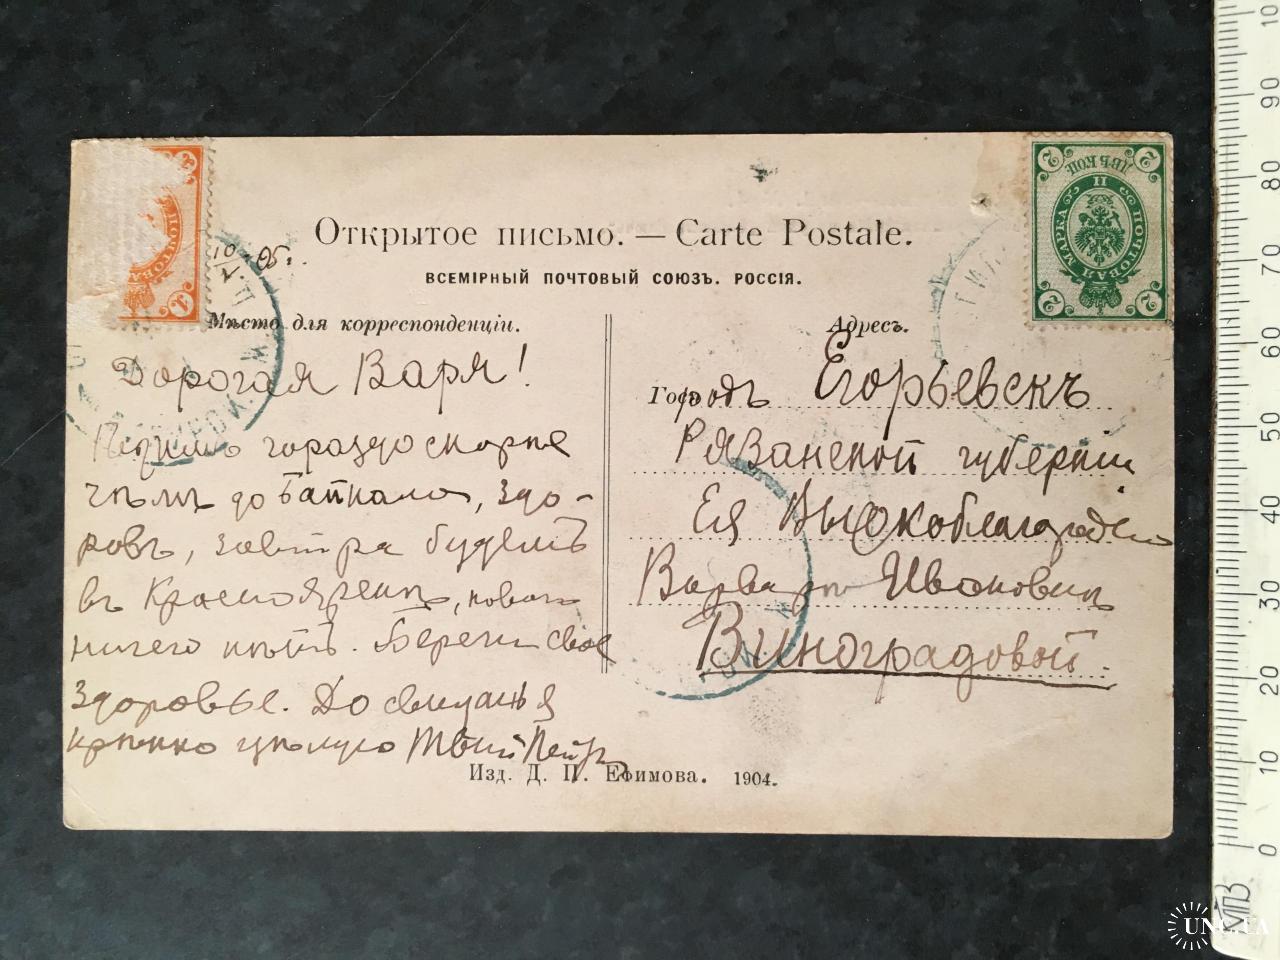 Открытое письмо. — Carte Postale.
ВСЕМІРНЫЙ ПОЧТОВЫЙ СОЮЗЪ. РОССІЯ.
10/V 05 г.
Мѣсто для корреспонденціи.
Дорогая Варя!
гораздо скорѣе
чѣмъ до Байкала, здо-
ровъ, завтра будемъ
въ Красноярскѣ, новаго
ничего нѣтъ. Береги свое
здоровье. До свиданья
крѣпко цѣлую Твой Петръ
Адресъ.
Городъ Егорьевскъ
Рязанской губерніи
Ея Высокоблагородію
Варварѣ Ивановнѣ
Виноградовой.
Изд. Д. П. Ефимова. 1904.
ПОЧТОВАЯ
1
2 ДВѢ КОП. 2
ПОЧТОВАЯ МАРКА
2 2
0 10 20 30 40 50 60 70 80 90 10
МПЗ
UNC.UA